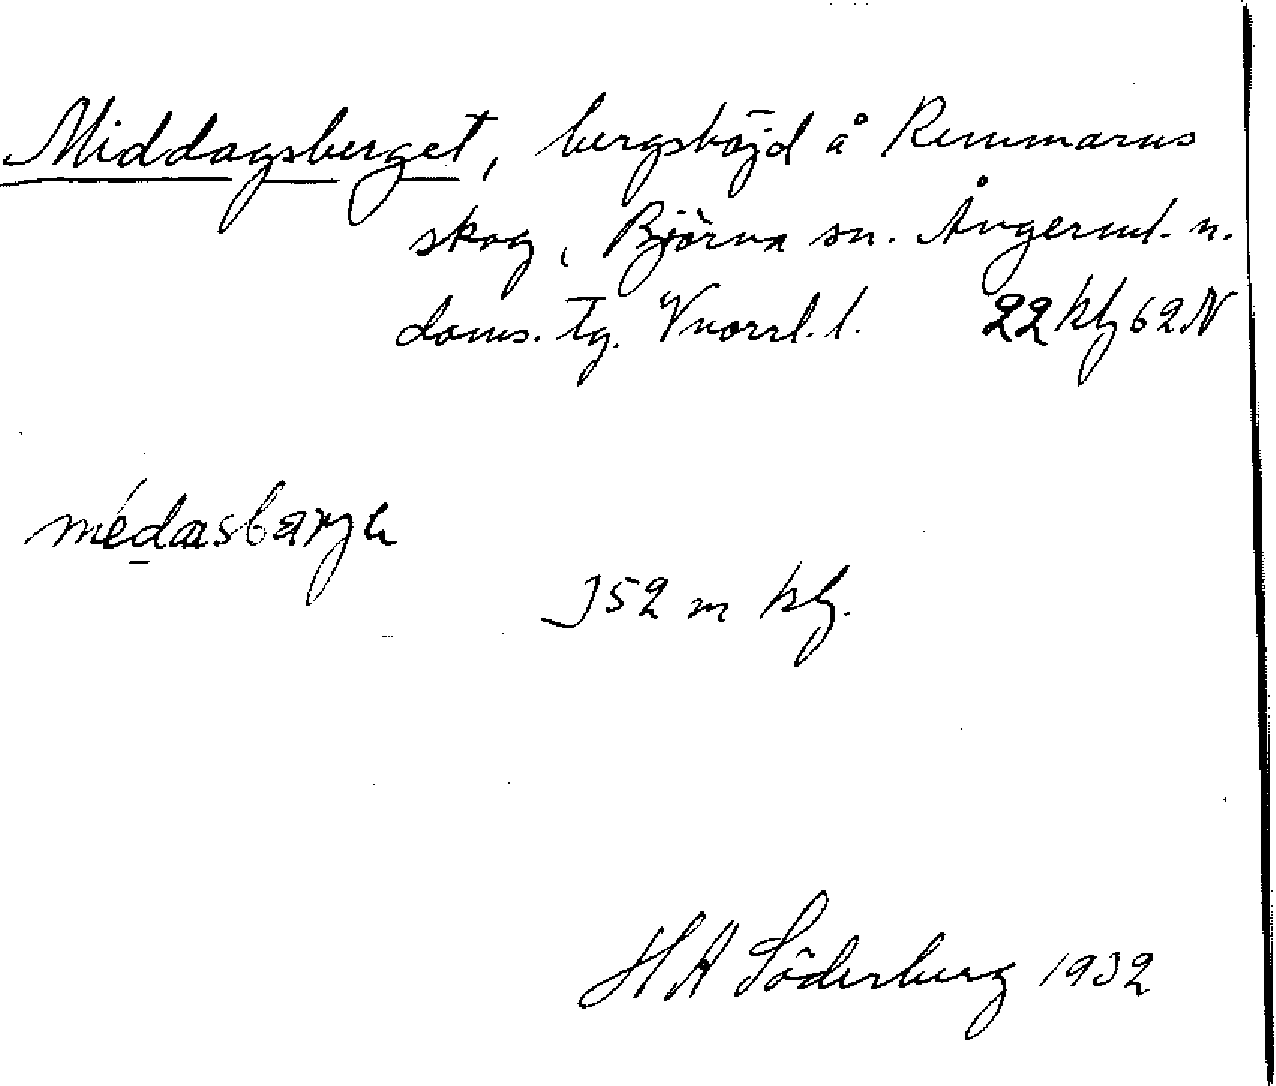 Middagsberget, bergshöjd å Remmarns
skog, Björna sn. Ångerml. n.
doms. tg. Vnorrl. l. 22 kbl 62 N
352 m kbl.
H A Söderberg 1932